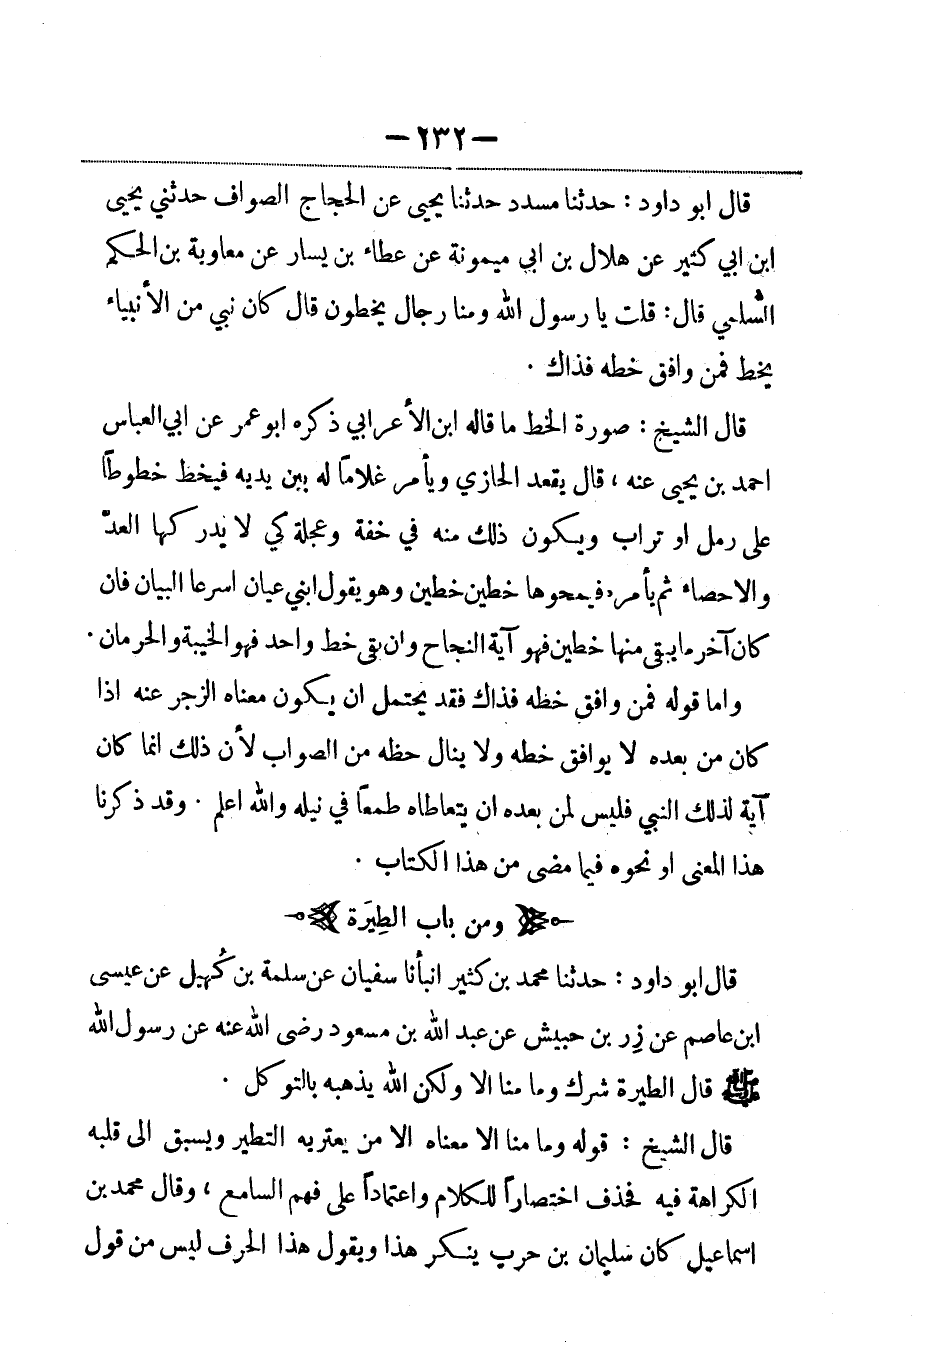 — ٢٣٢ —
قال ابو داود : حدثنا مسدد حدثنا يحيى عن الحجاج الصواف حدثني يحيى
ابن ابي كثير عن هلال بن ابي ميمونة عن عطاء بن يسار عن معاوية بن الحكم
السُلمي قال : قلت يا رسول الله ومنا رجال يخطون قال كان نبي من الأنبياء
يخط فمن وافق خطه فذاك .
قال الشيخ : صورة الخط ما قاله ابن الأعرابي ذكره ابو عمر عن ابي العباس
احمد بن يحيى عنه ، قال يقعد الحازي ويأمر غلاماً له بين يديه فيخظ خطوطاً
على رمل او تراب ويكون ذلك منه في خفة وعجلة كي لا يدركها العدّ
والاحصاء ثم يأمره فيمحوها خطين خطين وهو يقول ابني عيان اسرعا البيان فان
كان آخر ما يبقى منها خطين فهو آية النجاح وان بقى خط واحد فهو الخيبة والحرمان .
واما قوله فمن وافق خظه فذاك فقد يحتمل ان يكون معناه الزجر عنه اذا
كان من بعده لا يوافق خطه ولا ينال حظه من الصواب لأن ذلك انما كان
آية لذلك النبي فليس لمن بعده ان يتعاطاه طمعاً في نيله والله اعلم . وقد ذكرنا
هذا المعنى او نحوه فيما مضى من هذا الكتاب .
ومن باب الطِيَرة
قال ابو داود : حدثنا محمد بن كثير انبأنا سفيان عن سلمة بن كُهيل عن عيسى
ابن عاصم عن زِر بن حبيش عن عبد الله بن مسعود رضى الله عنه عن رسول الله
ﷺ قال الطيرة شرك وما منا الا ولكن الله يذهبه بالتوكل .
قال الشيخ : قوله وما منا الا معناه الا من يعتريه التطير ويسبق الى قلبه
الكراهة فيه فحذف اختصاراً للكلام واعتماداً على فهم السامع ، وقال محمد بن
اسماعيل كان سليمان بن حرب ينكر هذا ويقول هذا الحرف ليس من قول